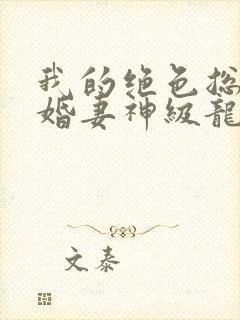 我的绝色总
婚妻神级龙
文泰